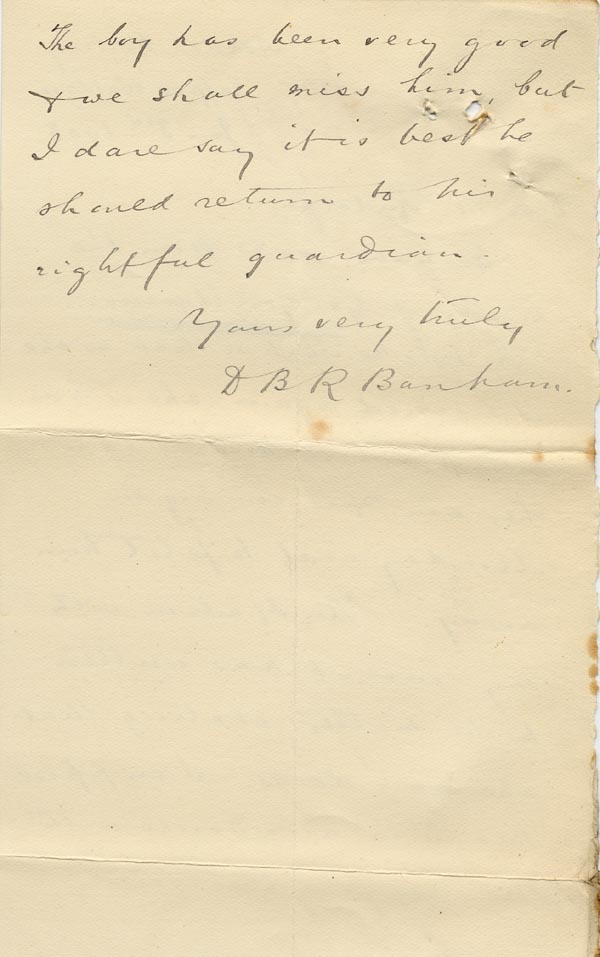 The boy has been very good
& we shall miss him, but
I dare say it is best he
should return to his
rightful guardian.
Yours very truly
D B R Banham.